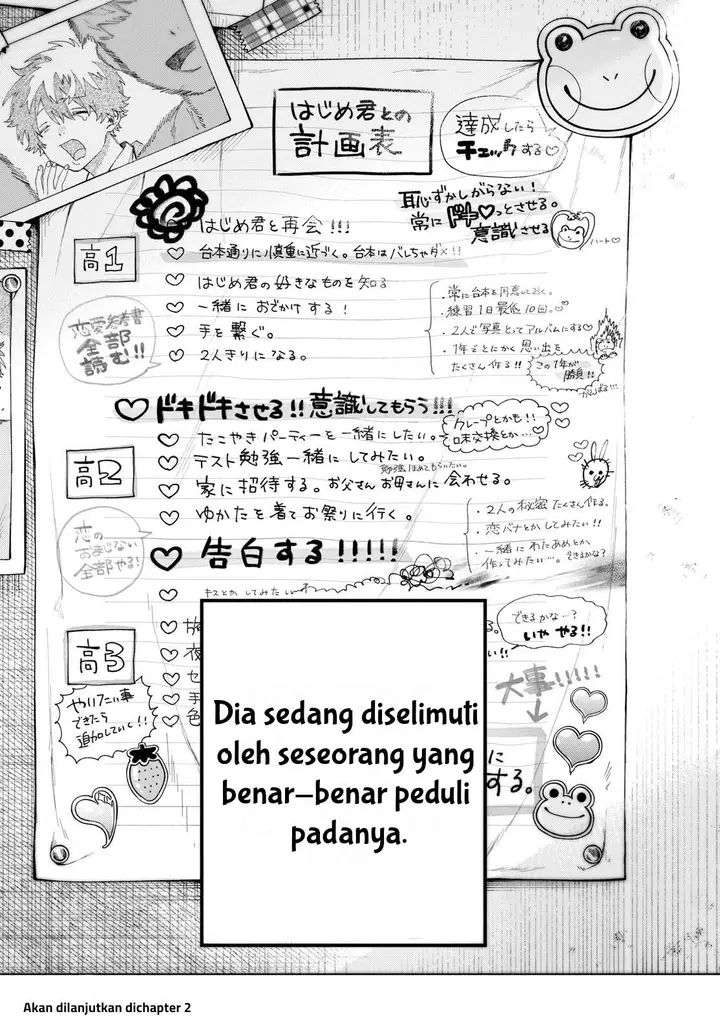 はじめ君との
計画表
達成したら
チェックする♡
恥ずかしがらない!
常にドキ♡っとさせる。
意識させる
ハート♡
はじめ君と再会!!!
高1
♡ 台本通りに慎重に近づく。台本はバレちゃダメ!!
♡ はじめ君の好きなものを知る
♡ 一緒におでかけする!
♡ 手を繋ぐ。
♡ 2人きりになる。
恋愛参考書
全部
読む!!
・常に台本を用意しておく。
・練習1日最低10回。
・2人で写真とってアルバムにする♡
・1年でとにかく思い出を
たくさん作る!!
この1年が
勝負!!
がんばる…
♡ドキドキさせる!!意識してもらう!!!
高2
♡ たこやきパーティーを一緒にしたい。
クレープとかも!!
味交換とか…
♡ テスト勉強一緒にしてみたい。
勉強ほめてもらいたい。
♡ 家に招待する。お父さんお母さんに会わせる。
♡ ゆかたを着てお祭りに行く。
♡ 告白する!!!!!
恋の
おまじない
全部やる!
・2人の秘密たくさん作る。
・恋バナとかしてみたい!!
・一緒にわたあめとか
作ってみたい…。できるかな?
キスとかしてみたい
高3
できるかな…?
いや やる!!
大事!!!!!
やりたい事
できたら
追加していく!!
に
する。
Dia sedang diselimuti
oleh seseorang yang
benar-benar peduli
padanya.
Akan dilanjutkan dichapter 2